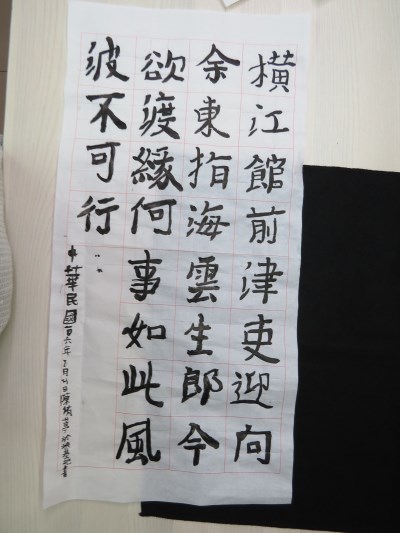 橫江館前津吏迎向
余東指海雲生郎今
欲渡緣何事如此風
波不可行
中華民國一百六年